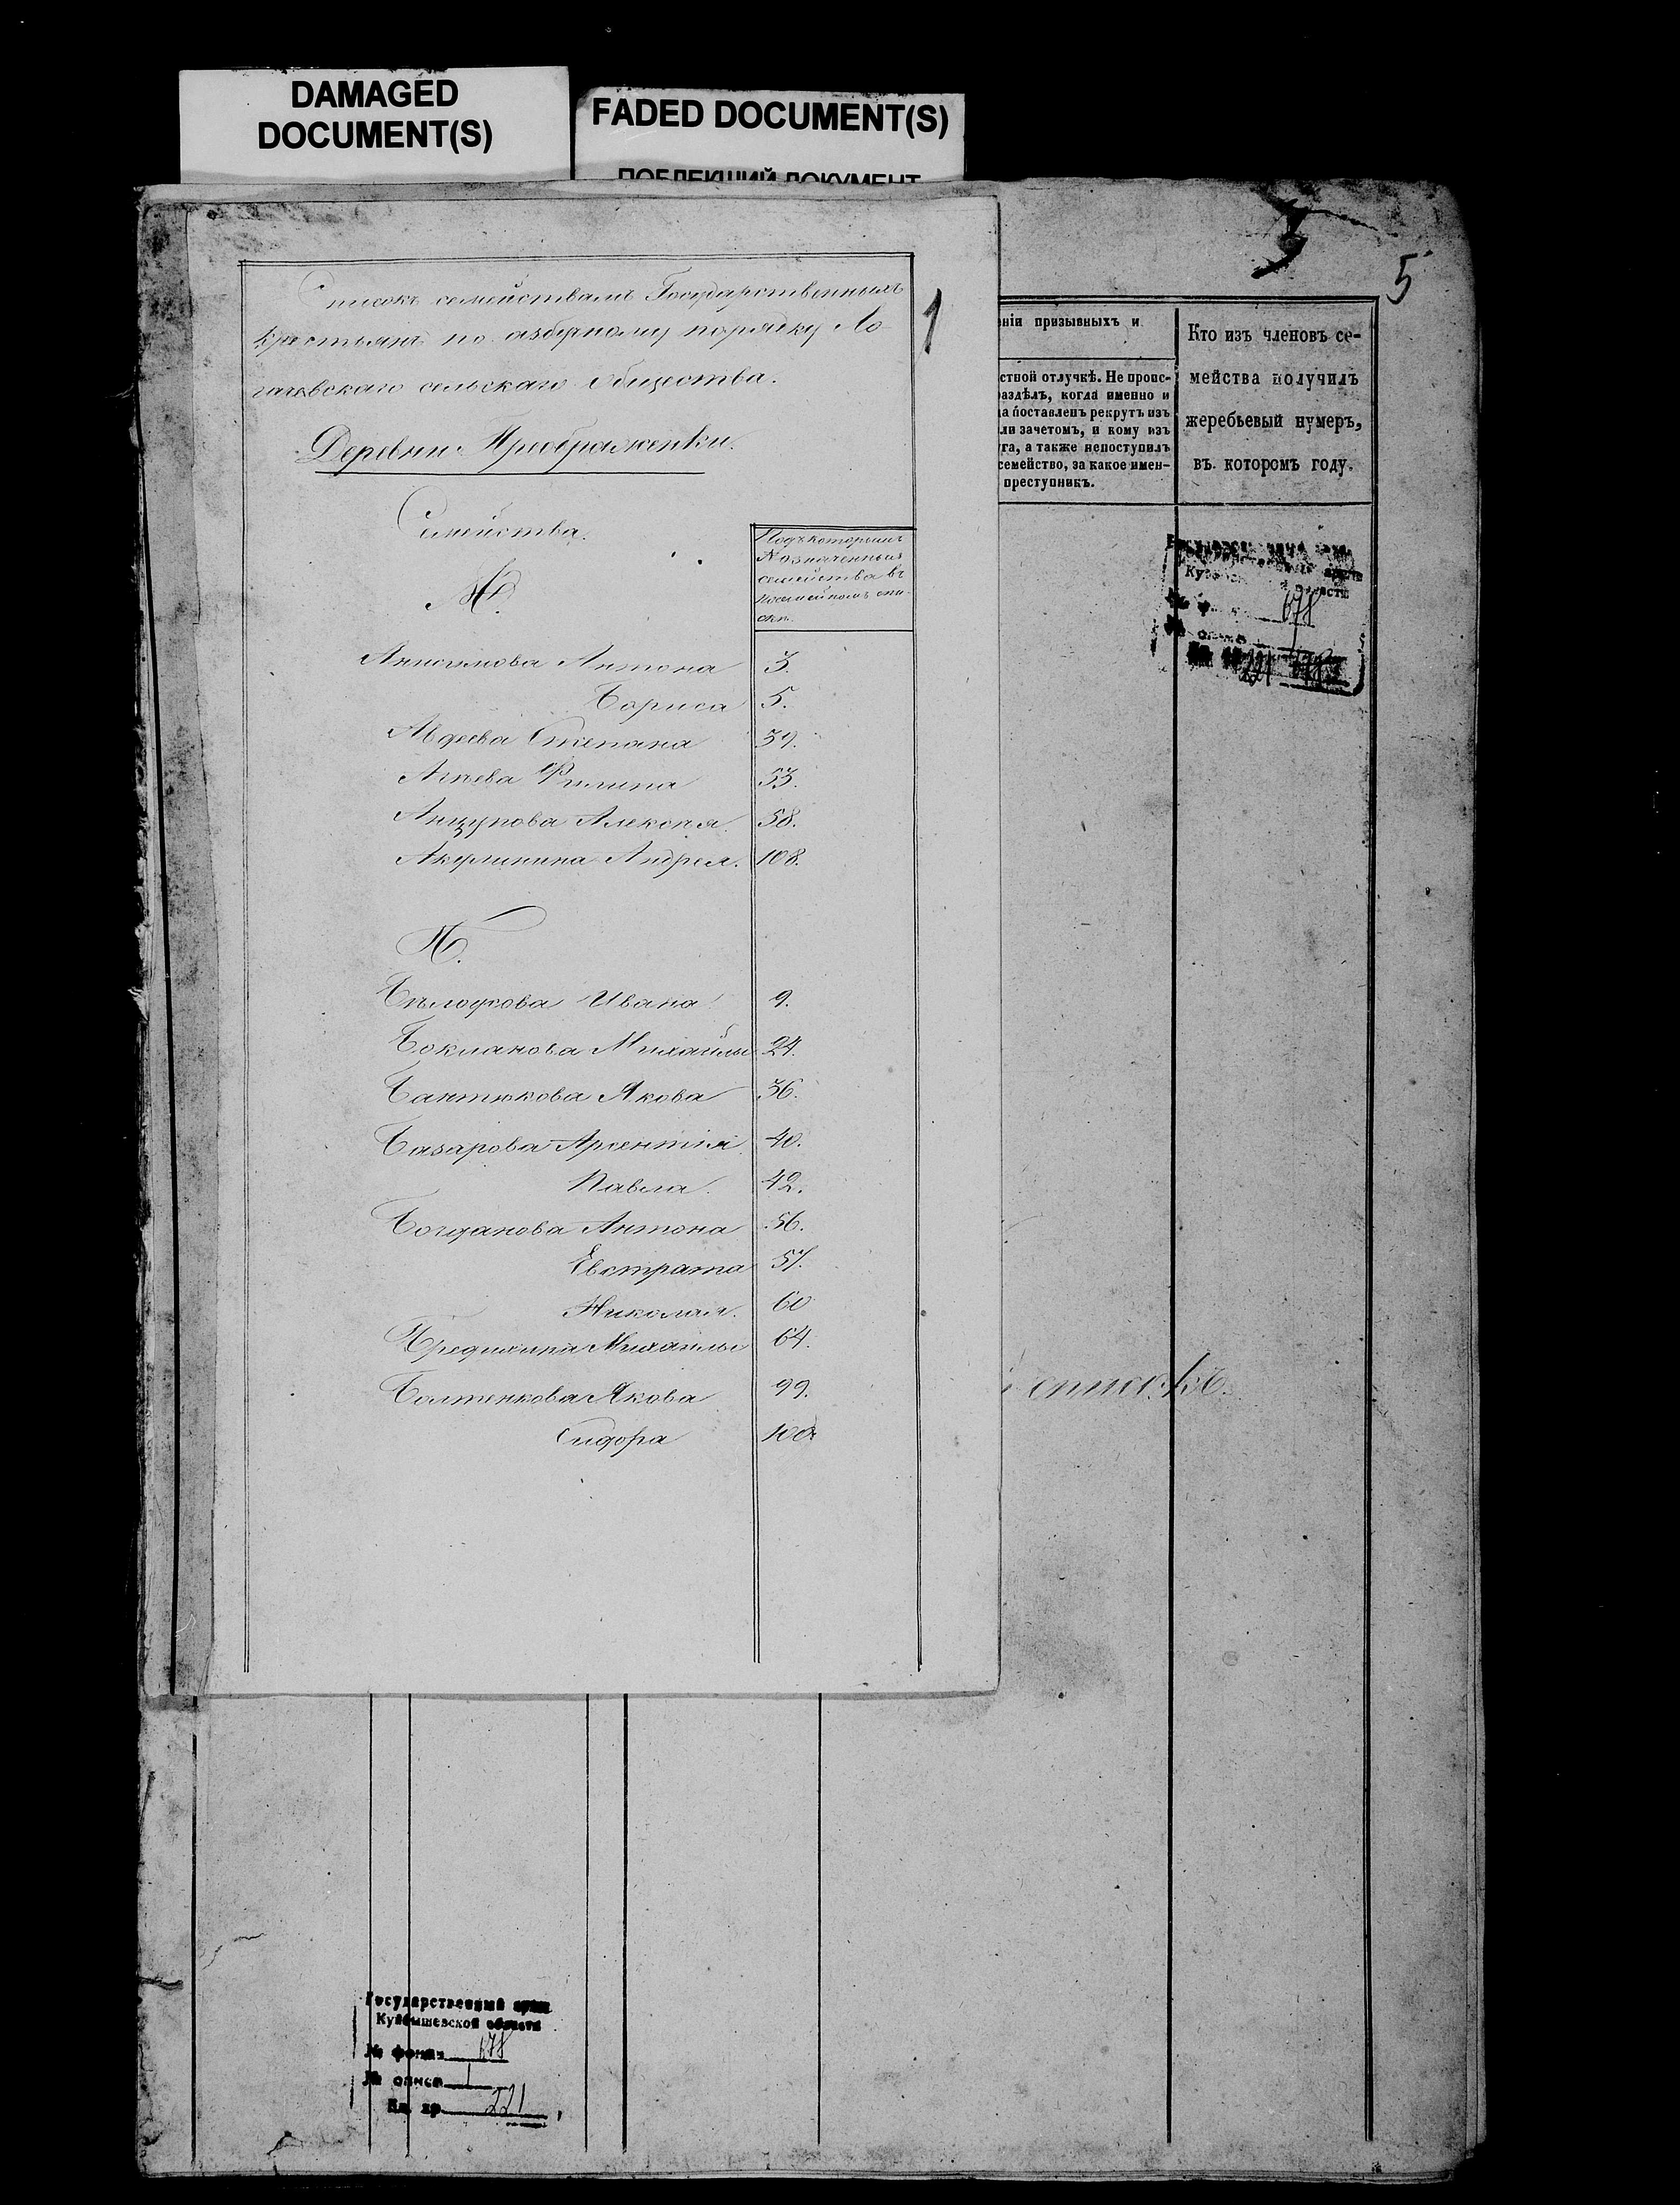 DAMAGED
DOCUMENT(S)
FADED DOCUMENT(S)
ПОБЛЕКШИЙ ДОКУМЕНТ
5
1
Списокъ семействамъ Государственныхъ
крестьянъ по азбучному порядку Ло-
гачевскаго сельскаго общества.
Деревни Преображенки.
Семейства.
Подъ которымъ
№ означенныя
семейства въ
посемейномъ спи-
скѣ.
А.
Анисимова Антона 3.
Бориса 5.
Авдеева Степана 39.
Агѣева Филипа 53.
Анцупова Алексѣя 58.
Акулинина Андрея. 108.
Б.
Бѣлоусова Ивана 9.
Бокланова Михайлы 24.
Бантюкова Якова 36.
Базарова Арсентія 40.
Павла 42.
Богданова Антона 56.
Евстрата 57.
Николая. 60
Бредихина Михайлы 64.
Болтенкова Якова 99.
Сидора 100.
ніи призывныхъ и
стной отлучкѣ. Не проис-
аздѣлъ, когда именно и
а поставленъ рекрутъ изъ
ли зачетомъ, и кому изъ
га, а также непоступилъ
семейство, за какое имен-
преступникъ.
Кто изъ членовъ се-
мейства получилъ
жеребьевый нумеръ,
въ которомъ году.
678
1
221
спискѣ.
Государственный архив
Куйбышевской области
№ фонда 678
№ описи 1
Ед. хр. 221